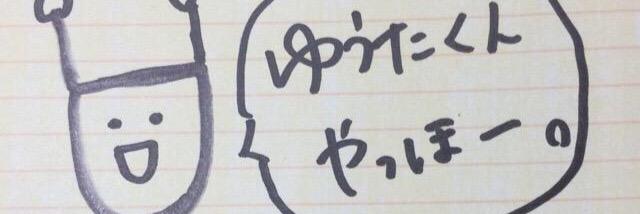 ゆうたくん
やっほー。